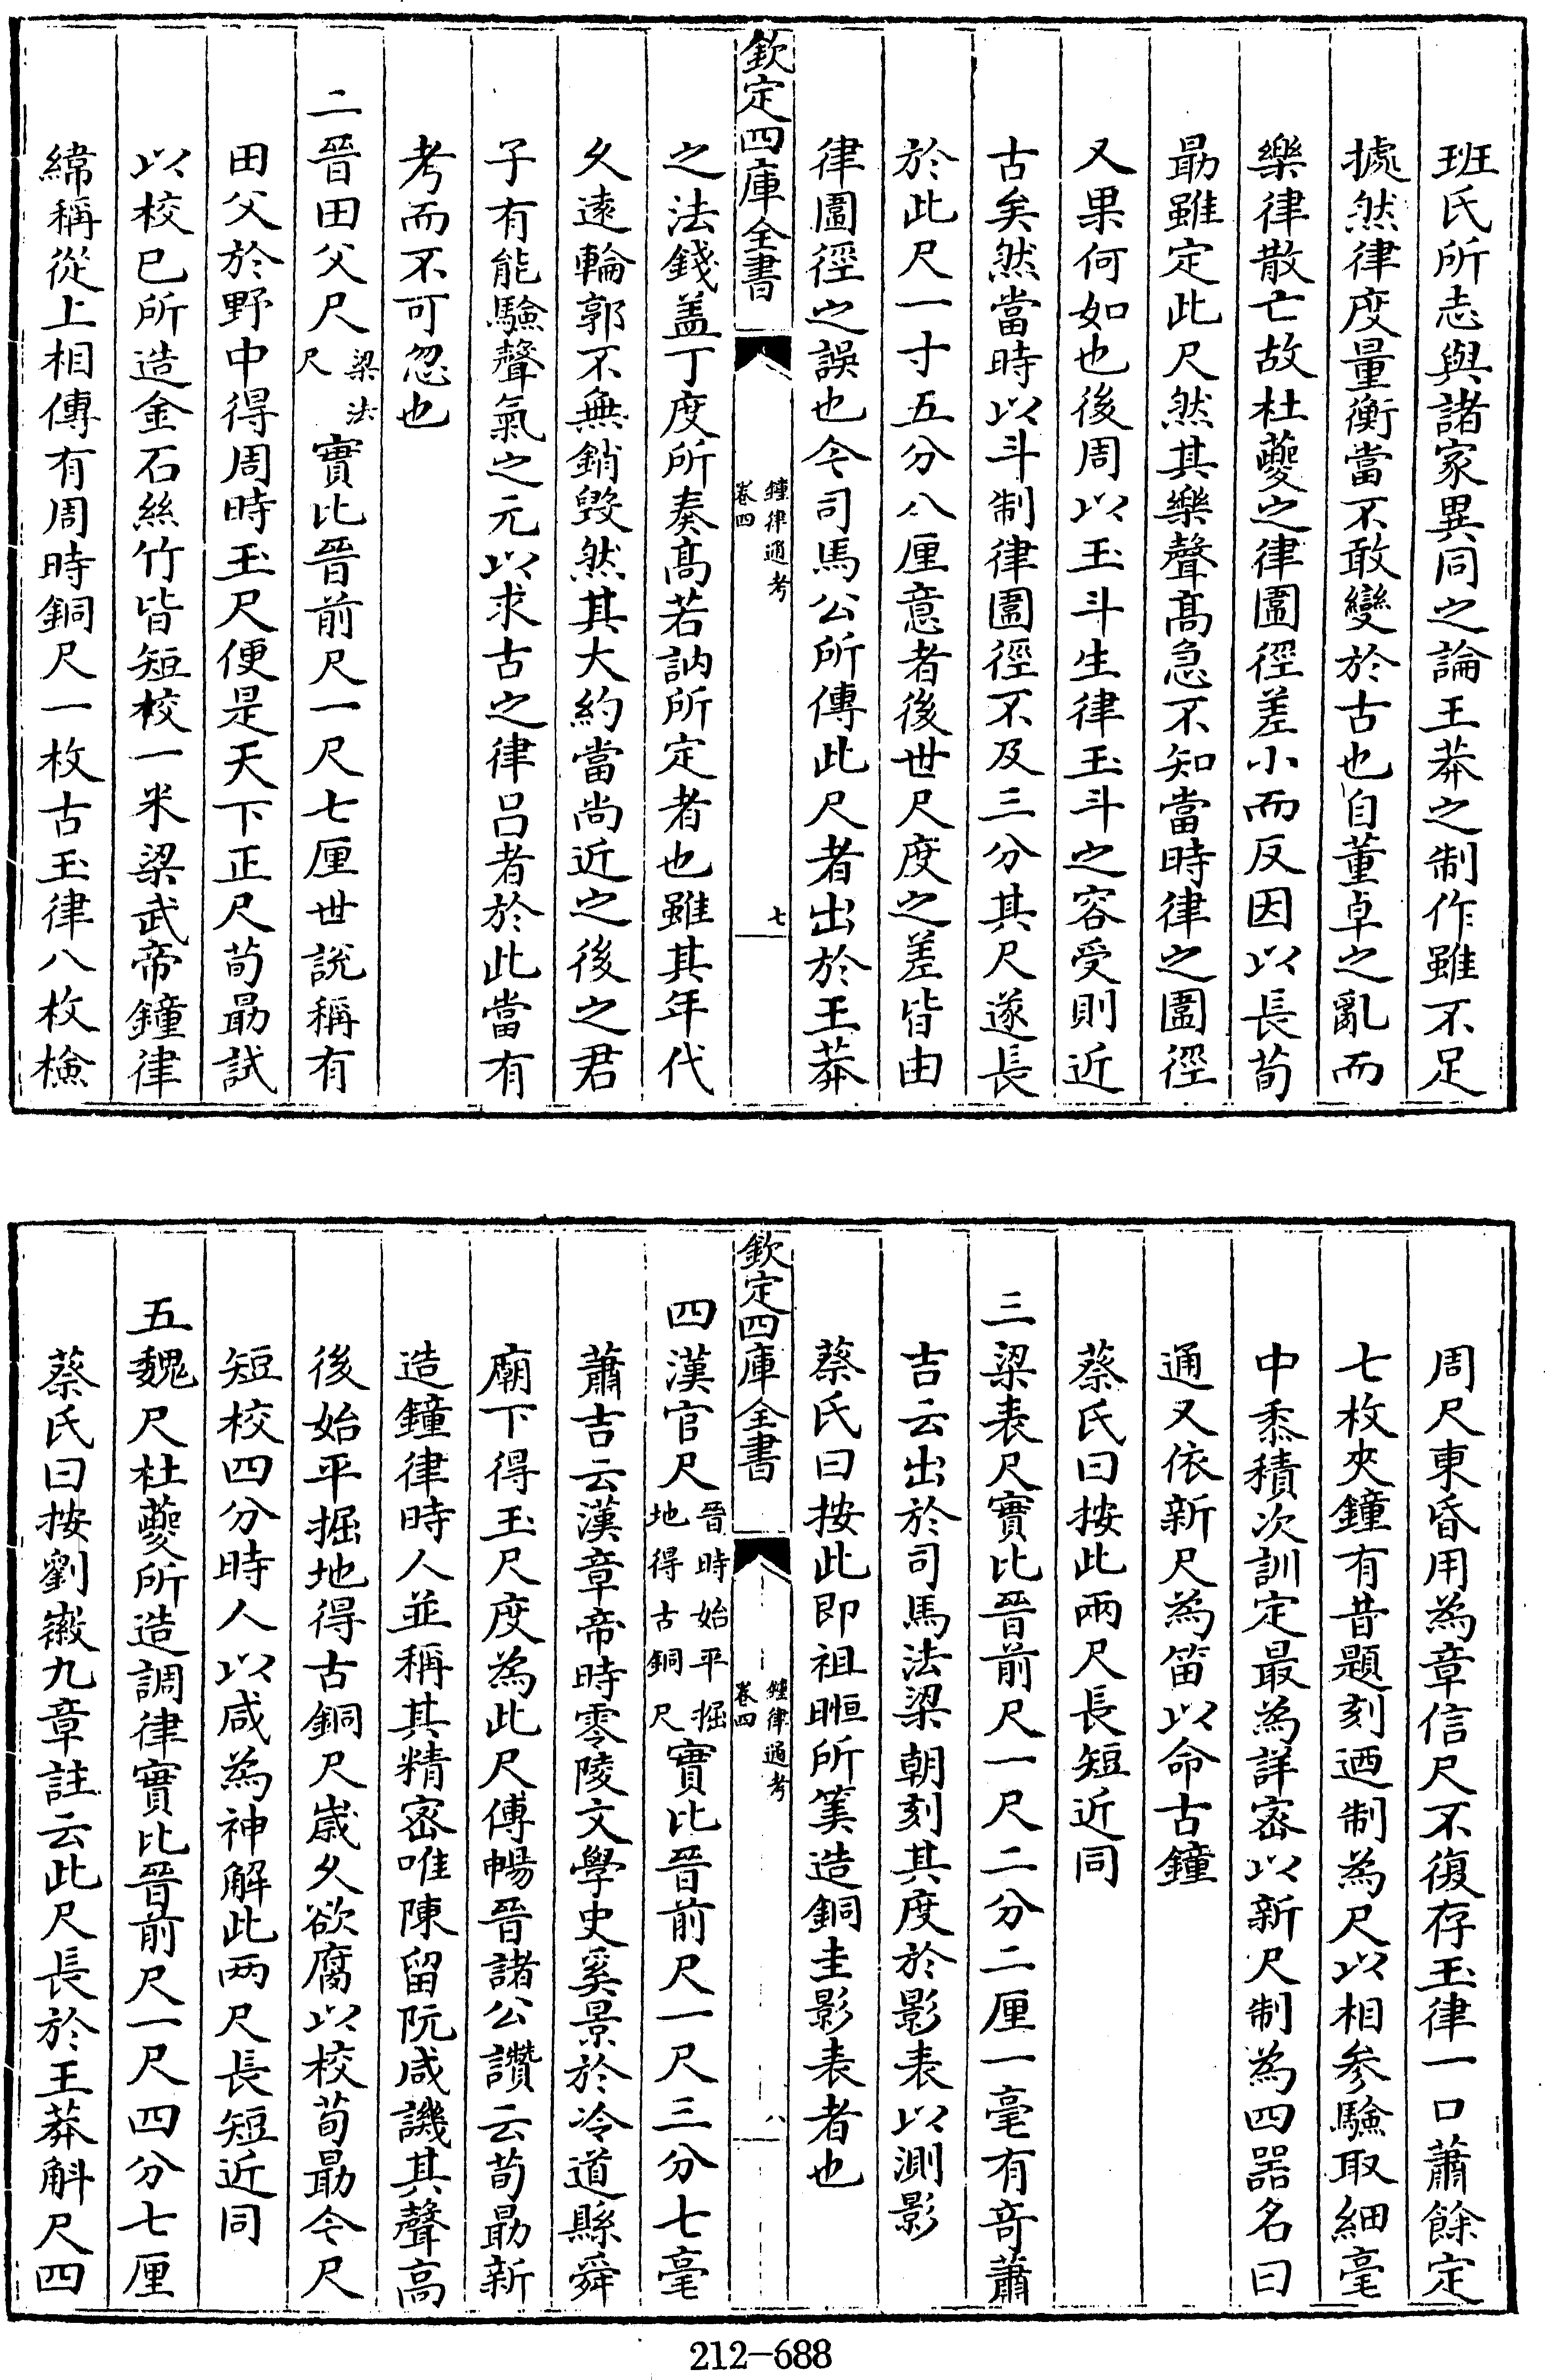 班氏所志與諸家異同之論王莽之制作雖不足
據然律度量衡當不敢變於古也自董卓之亂而
樂律散亡故杜夔之律圍徑差小而反因以長荀
勗雖定此尺然其樂聲髙急不知當時律之圍徑
又果何如也後周以玉斗生律玉斗之容受則近
古矣然當時以斗制律圍徑不及三分其尺遂長
於此尺一寸五分八厘意者後世尺度之差皆由
律圍徑之誤也今司馬公所傳此尺者出於王莽
欽定四庫全書
鍾律通考
卷四
七
之法錢蓋丁度所奏髙若訥所定者也雖其年代
久遠輪郭不無銷毀然其大約當尚近之後之君
子有能驗聲氣之元以求古之律呂者於此當有
考而不可忽也
二晉田父尺梁法尺實比晉前尺一尺七厘世說稱有
田父於野中得周時玉尺便是天下正尺荀勗試
以校己所造金石絲竹皆短校一米梁武帝鐘律
緯稱從上相傳有周時銅尺一枚古玉律八枚檢
周尺東昏用為章信尺不復存玉律一口蕭餘定
七枚夾鐘有昔題刻迺制為尺以相參驗取細毫
中黍積次訓定最為詳密以新尺制為四器名曰
通又依新尺為笛以命古鐘
蔡氏曰按此兩尺長短近同
三梁表尺實比晉前尺一尺二分二厘一毫有奇蕭
吉云出於司馬法梁朝刻其度於影表以測影
蔡氏曰按此即祖暅所筭造銅圭影表者也
欽定四庫全書
鍾律通考
卷四
八
四漢官尺晉時始平掘地得古銅尺實比晉前尺一尺三分七毫
蕭吉云漢章帝時零陵文學史奚景於冷道縣舜
廟下得玉尺度為此尺傅暢晉諸公讚云荀勗新
造鐘律時人並稱其精密唯陳留阮咸譏其聲高
後始平掘地得古銅尺歲久欲腐以校荀勗今尺
短校四分時人以咸為神解此两尺長短近同
五魏尺杜夔所造調律實比晉前尺一尺四分七厘
蔡氏曰按劉徽九章註云此尺長於王莽斛尺四
212-688